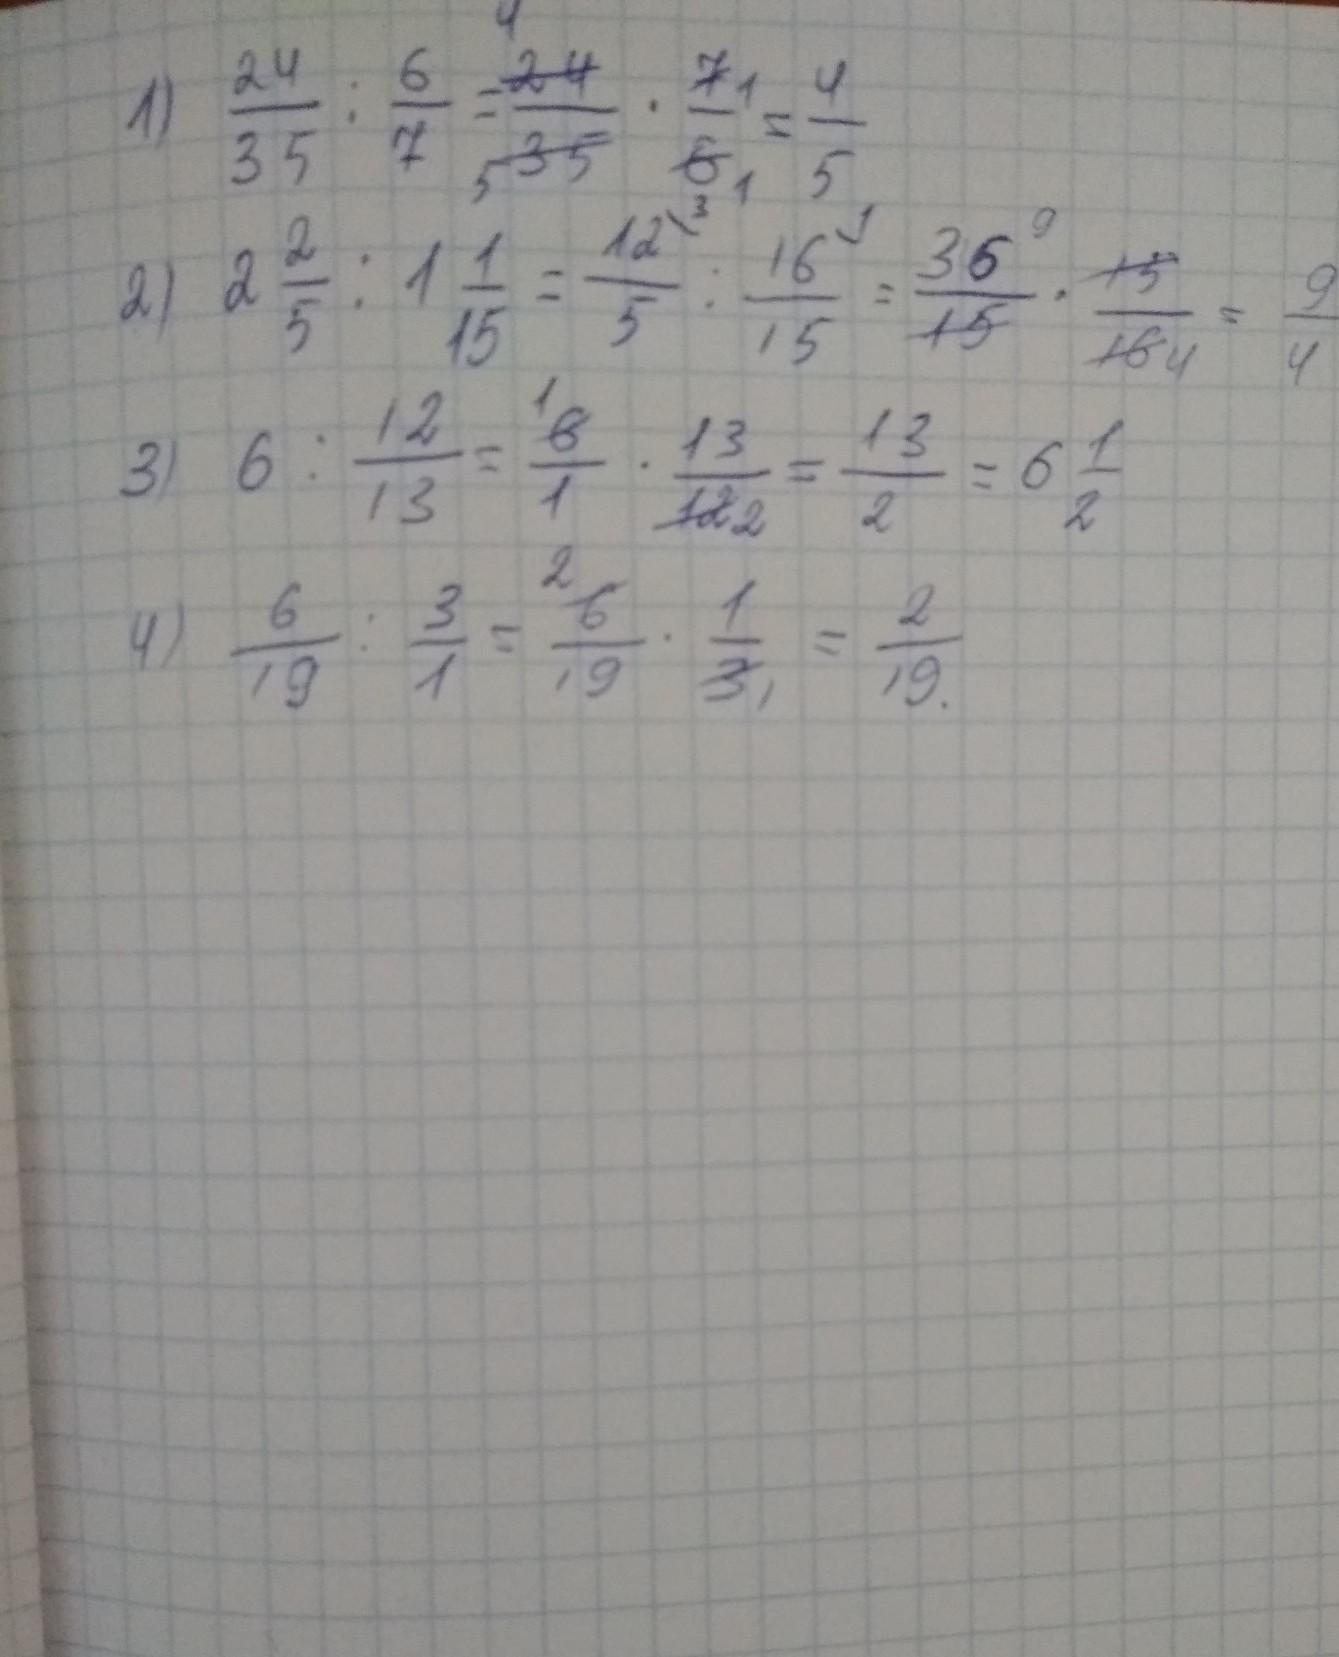 1) 24/35 : 6/7 = 24/35 · 7/6 = 4/5
2) 2 2/5 : 1 1/15 = 12/5 : 16/15 = 36/15 · 15/16 = 9/4
3) 6 : 12/13 = 6/1 · 13/12 = 13/2 = 6 1/2
4) 6/19 : 3/1 = 6/19 · 1/3 = 2/19.